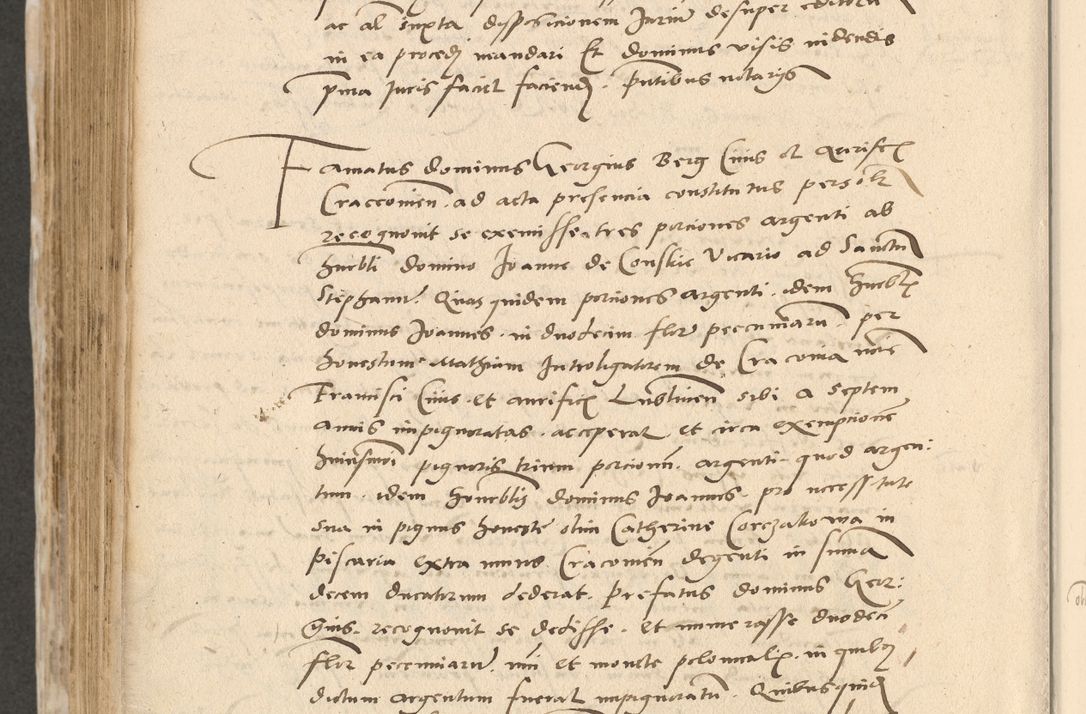 ac al Iuxta dispositionem Iurium desuper editorum
in ea procedj mandari Et dominus visis videndis
prima Iuris faciet faciend. pntibus notarijs
Famatus dominus Georgius Berg Ciuis et Aurifex
Cracouien. ad acta presencia constitutus person
recognouit se exemisse tres porciones argenti ab
honorbli domino Ioanne de Conskie vicario ad Sanctum
Stephanum. Quas quidem porciones argenti idem honorblis
dominus Ioannes in duodecim flor peccuniarum per
honestum Mathiam Introligatorem de Cracouia noie
Francisci Ciuis et aurifici Lublinen sibi a septem
annis impignoratas acceperat et circa exempcionem
huiusmoi pignoris trium porcionum argenti quod argen:
tum idem honorblis dominus Ioannes pro necessitate
sua in pignus honeste olim Catherine Corczakowa in
piscaria extra muros Cracouien degenti in summa
decem ducatorum dederat. Prefatus dominus Geor:
gius recognouit se dedisse et numerasse duodeci
flor pecuniarum mri et monete polonicalis in quibus
dictum argentum fuerat impignoratum. Quibusquidem